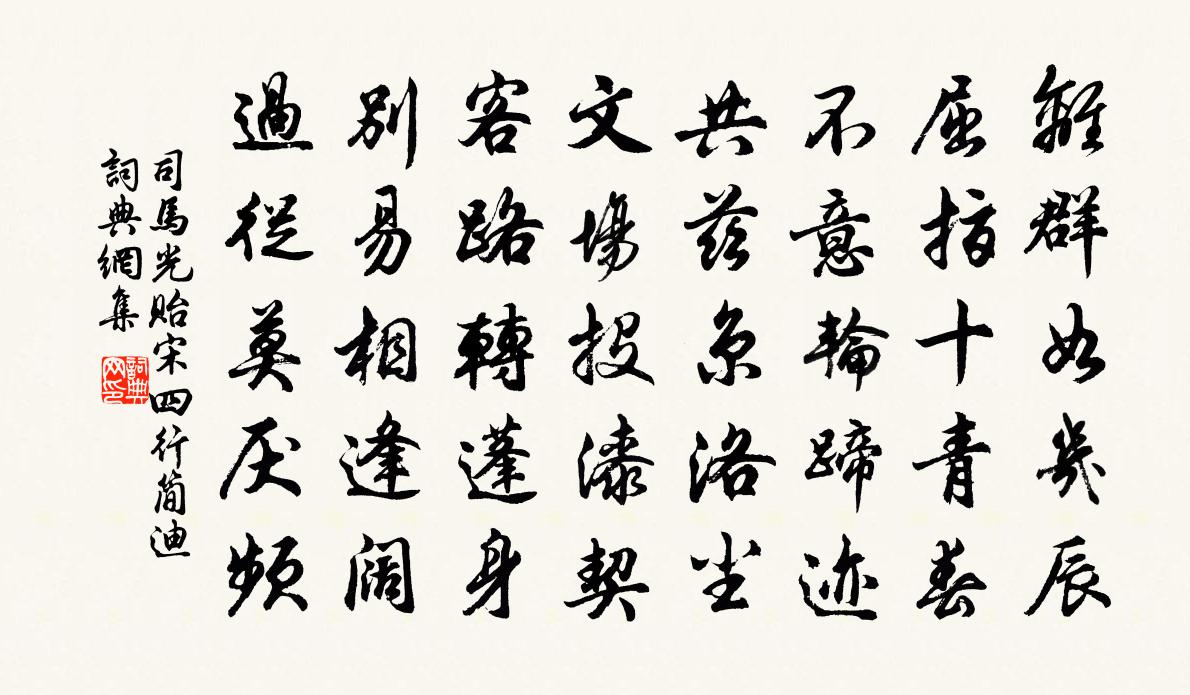 離群如幾辰
屈指十青春
不意輪蹄迹
共茲京洛尘
文場投漆契
客路轉蓬身
別易相逢闊
過從莫厌頻
司馬光貽宋四行简迪
詞典網集
詞典
网印